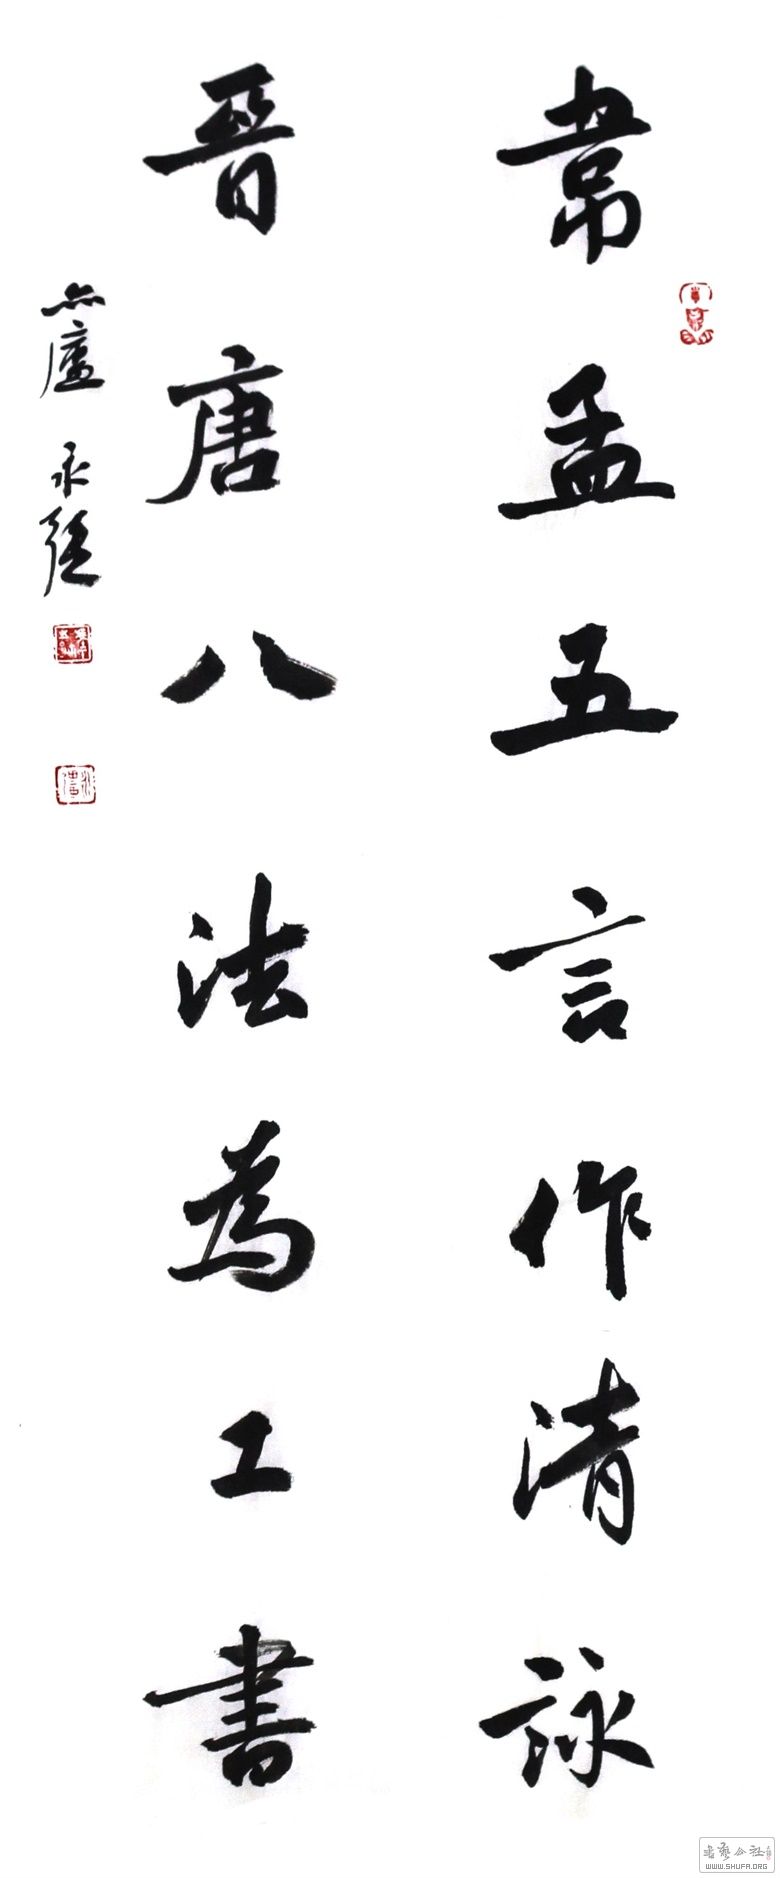 韋孟五言作清詠
晉唐八法為工書
書藝公社
WWW.SHUFA.ORG